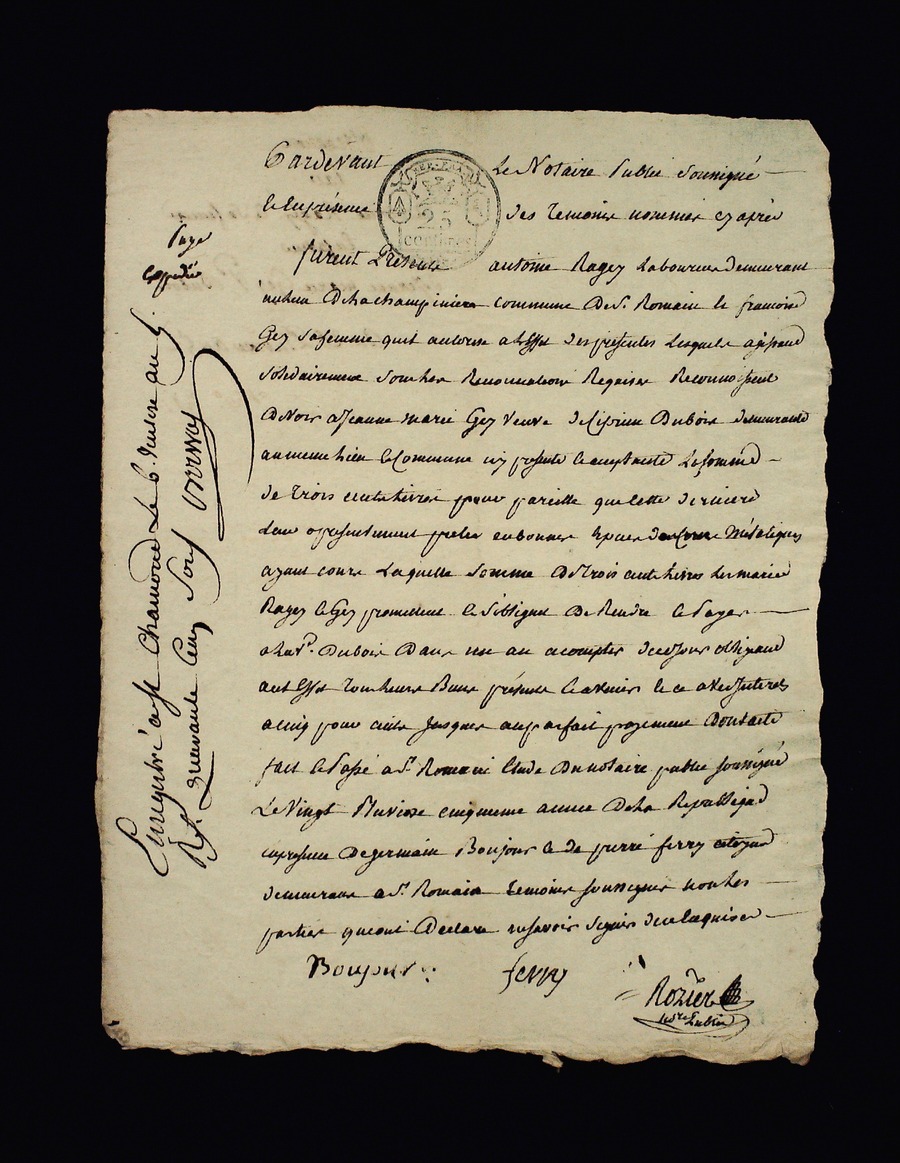 Pardevant Le Notaire Public Soussigné
& En présence des Temoins nommés cy après
REP. FRA.
25
centimes
furent Présents antoine Ragey Laboureur demeurant
au lieu de la champiniere commune De St. Romain & francoise
Gey sa femme quil autorise a L'effet des présentes Lesquels
solidairement sous les Renonciations Requises Reconnoissent
Devoir a Jeanne marie Gey veuve de Dubois demeurante
au meme Lieu & Commune icy présente & acceptante La somme
de Trois cents Livres pour pareille que cette derniere
leur a présentement pretée en bonnes Espèces Métaliques
ayant cours Laquelle somme de trois cents Livres Les mariés
Ragey & Gey promettent & s'obligent De Rendre & Payer
a La ve. Dubois Dans un an a compter de ce jour obligeant
a cet Effet Tous leurs Biens présents & avenir & ce avec Interets
a cinq pour cent Jusques au parfait payement Dont acte
fait & Passé a St. Romain Etude Du notaire public soussigné
Le Vingt Pluviose cinquieme année De La Republique
en présence De germain Boujour & de pierre ferry citoyens
demeurans a St. Romain Temoins soussignés non les
parties qui ont Declaré ne savoir signer de ce Enquises
Boujour ferry
Rozier
notre Public
Paye
Expédié
Enregistré a St Chamond Le 6. Ventose an 5.
Rt. quarante cinq sous